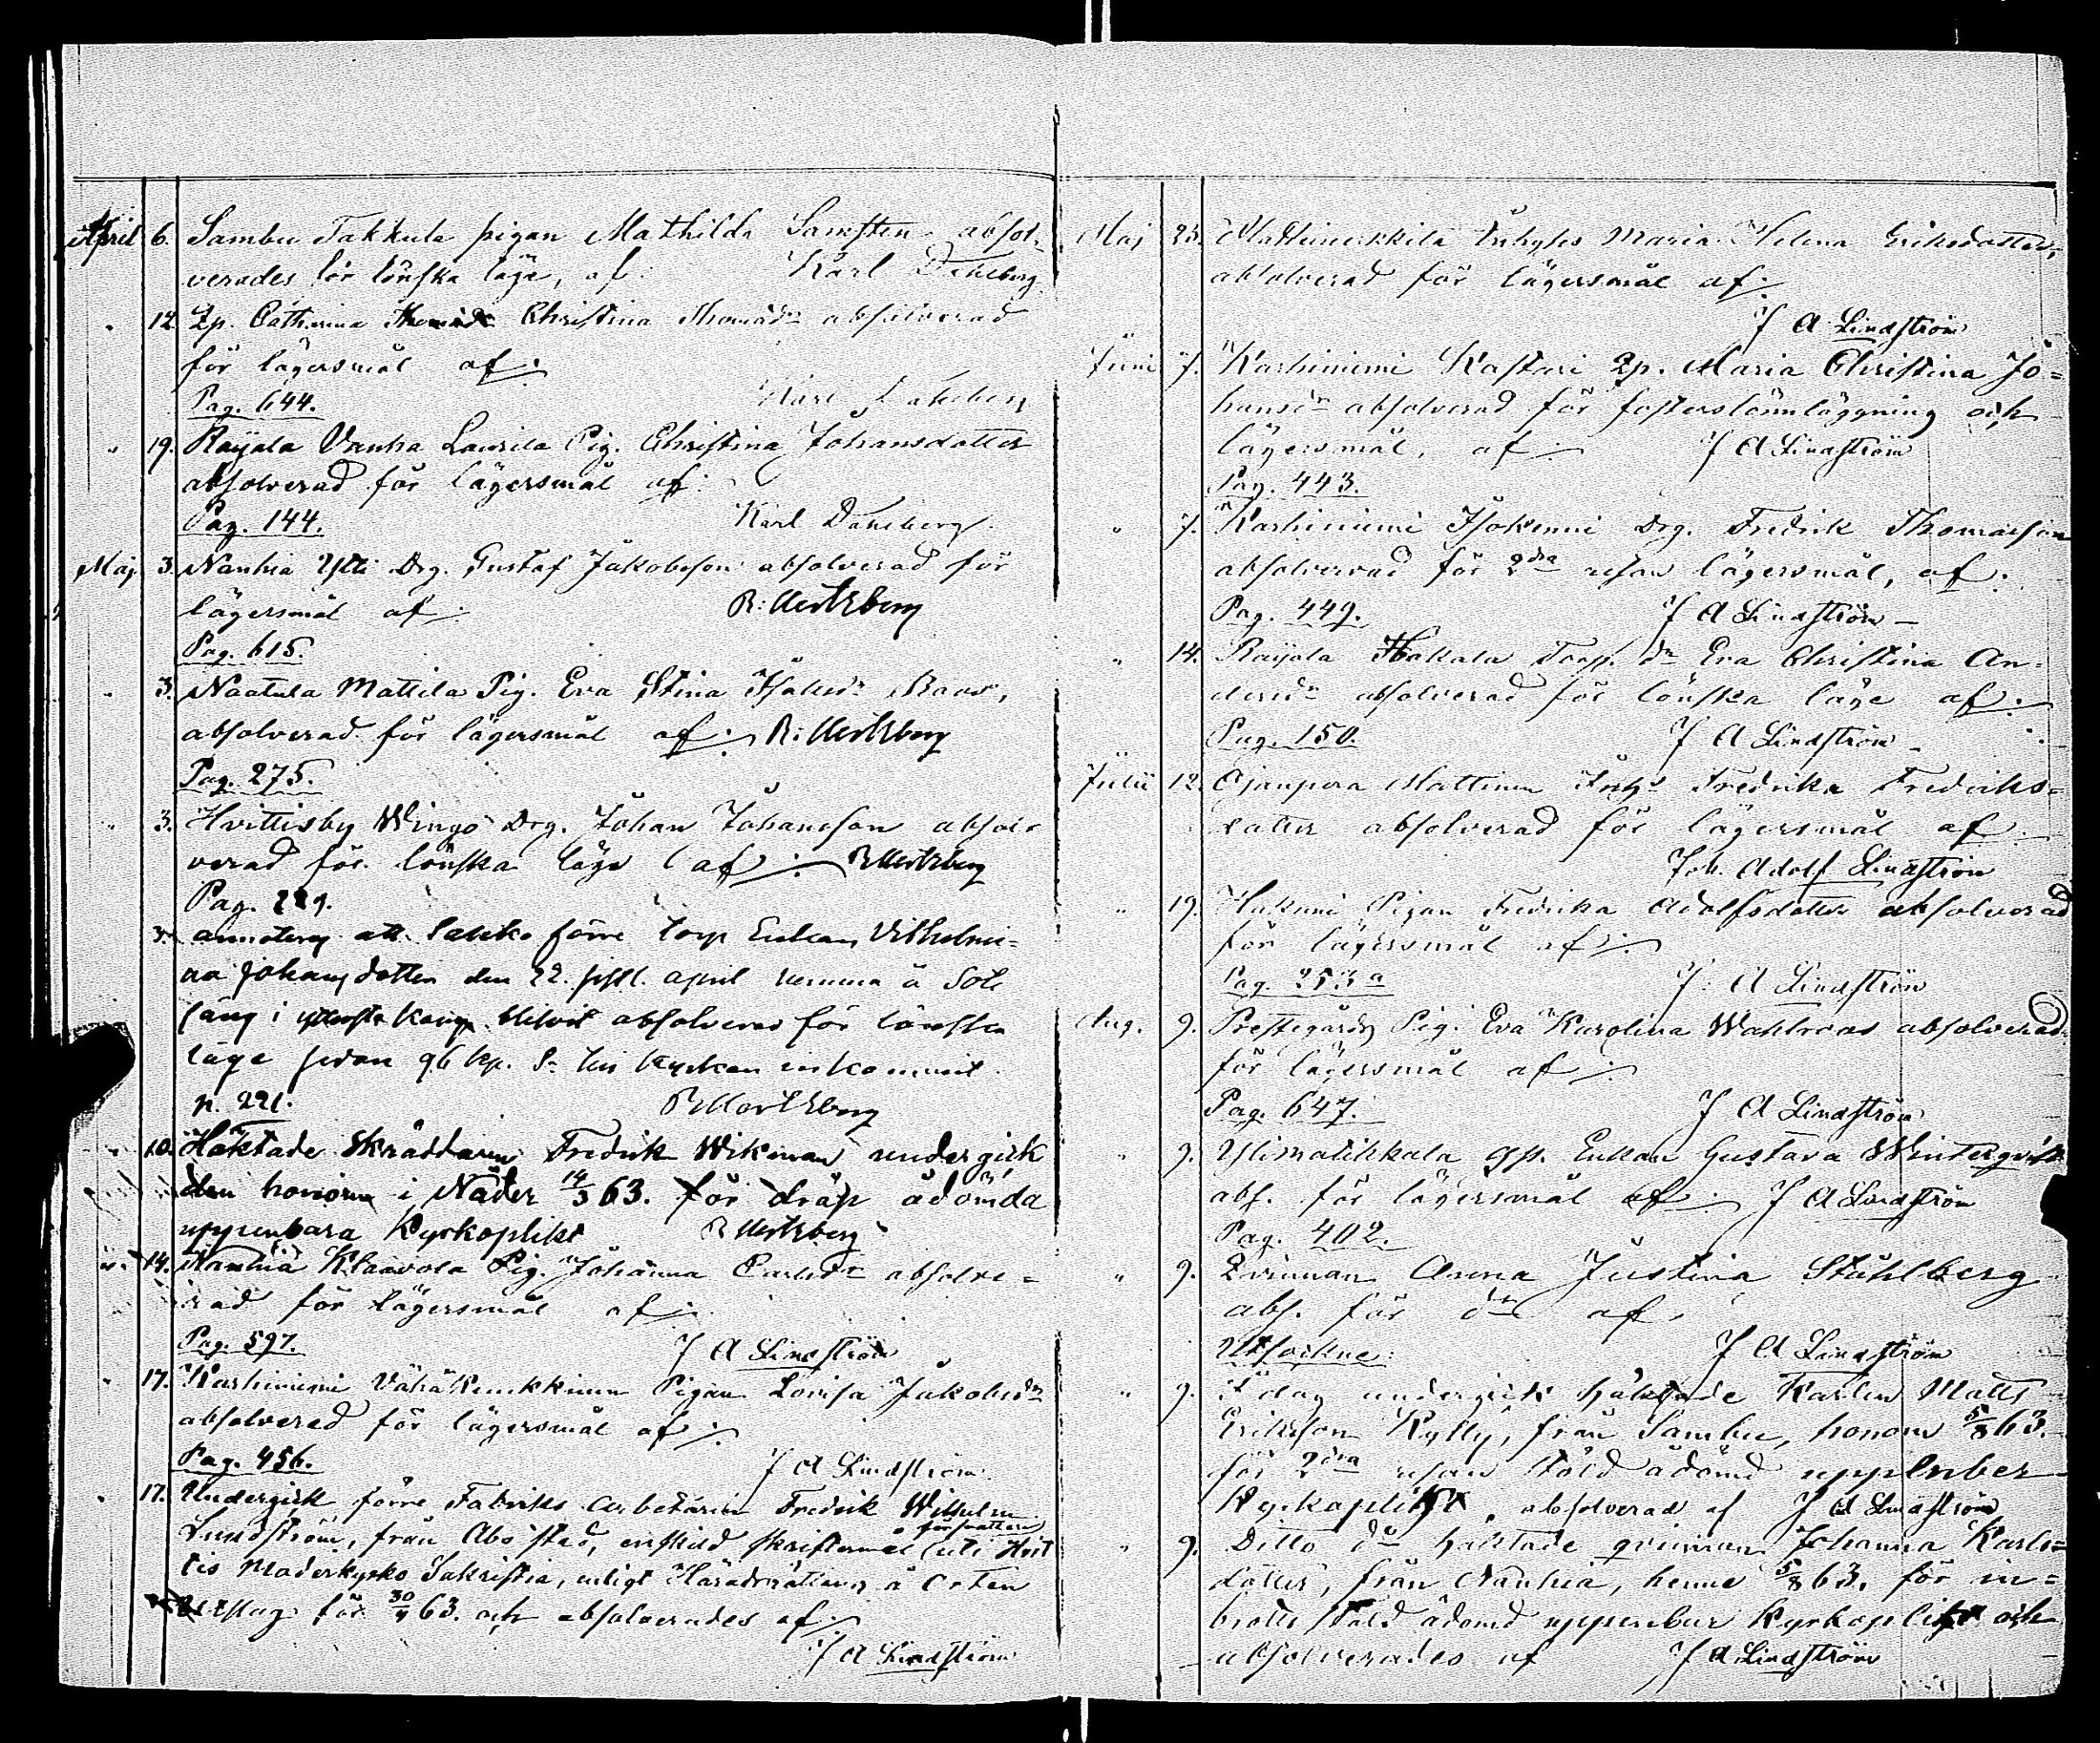 April 6. Sambu Takkula pigan Mathilda Samsten absol-
verades för lönska läge, af. Karl Dahlberg
" 12. Qp. Catharina Christina Thomasdr absolverad
för lägersmål af:
Pag. 644. Karl Dahlberg
" 19. Raijala Vanha Laurila Pig. Christina Johansdotter
absolverad för lägersmål af:
Pag. 144. Karl Dahlberg.
Maj 3. Nanhia Ylli Drg. Gustaf Jakobsson absolverad för
lägersmål af: R: Mertzberg
Pag. 615.
" 3. Naatula Mattila Pig. Eva Stina
absolverad för lägersmål af: R: Mertzberg
Pag. 275.
" 3. Hvittisby Wingo Drg. Johan Johansson absol-
verad för lönska läge af: R Mertzberg
Pag. 229.
3. att förre torp Enkan Vilhelmi-
na Johansdotter den 22. sistl. april
i absolverad för lönska
läge sedan inkommit.
p. 221. R Mertzberg
" 10. Häktade Skräddaren Fredrik Wikman undergick
den honom i Nåder 14/3 63. för dråp ådömda
uppenbara Kyrkoplikt R Mertzberg
" 14. Nanhia Klaavola Pig. Johanna Carlsdr absolve-
rad för lägersmål af:
Pag. 597. J A Lindström
" 17. Karhiniemi Vähäkuukkinen Pigan Lovisa Jakobsdr
absolverad för lägersmål af:
Pag. 456. J A Lindström.
" 17. Undergick förre Fabriks arbetaren Fredrik Wilhelm
Lundström, från Åbo stad, enskild skriftermål inför uti Hvit
tis Moderkyrko Sakristia, enligt Häradsrättens å Orten
Utslag för 30/4 63. och absolverades af:
J A Lindström
Maj 25. Inhyses Maria Helena Eriksdotter,
absolverad för lägersmål af:
J A Lindström
Juni 7. Karhiniemi Kastari Qp. Maria Christina Jo=
hansdr absolverad för fosterslönnläggning och
lägersmål, af: J A Lindström
Pag. 443.
" 7. Karhiniemi Isokenni Drg. Fredrik Thomasson
absolverad för 2dra resan lägersmål, af:
Pag. 449. J A Lindström
" 14. Raijala Hakala Torp. dr Eva Christina An-
dersdr absolverad för lönska läge af:
Pag. 150. J A Lindström
Julii 12. Ojanpera Mattinen Inhs Fredrika Fredriks=
dotter absolverad för lägersmål af
Joh. Adolf Lindström
" 19. Hakuni Pigan Fredrika Adolfsdotter absolverad
för lägersmål af:
Pag. 253 a J. A Lindström
Aug. 9. Prestegårds Pig. Eva Karolina Wahlroos absolverad
för lägersmål af:
Pag. 647. J A Lindström
" 9. Ylimatikkala gp. Enkan Gustava Winterqvist
abs. för lägersmål af: J A Lindström
Pag. 402.
" 9. Qvinnan Anna Justina Ståhlberg
abs. för do af.
Utsokne: J A Lindström
" 9. I dag undergick häktade Karlen Matts
Eriksson Kylly, från Sambu, honom 5/8 63.
för 2dra resan stöld ådömd uppenbar
Kyrkoplikt, absolverad af J A Lindström
" 9. Ditto do häktade qvinnan Johanna Karls=
dotter, från Nanhia, henne 5/8 63. för in=
brotts stöld ådömd uppenbar Kyrkoplikt och
absolverades af J A Lindström